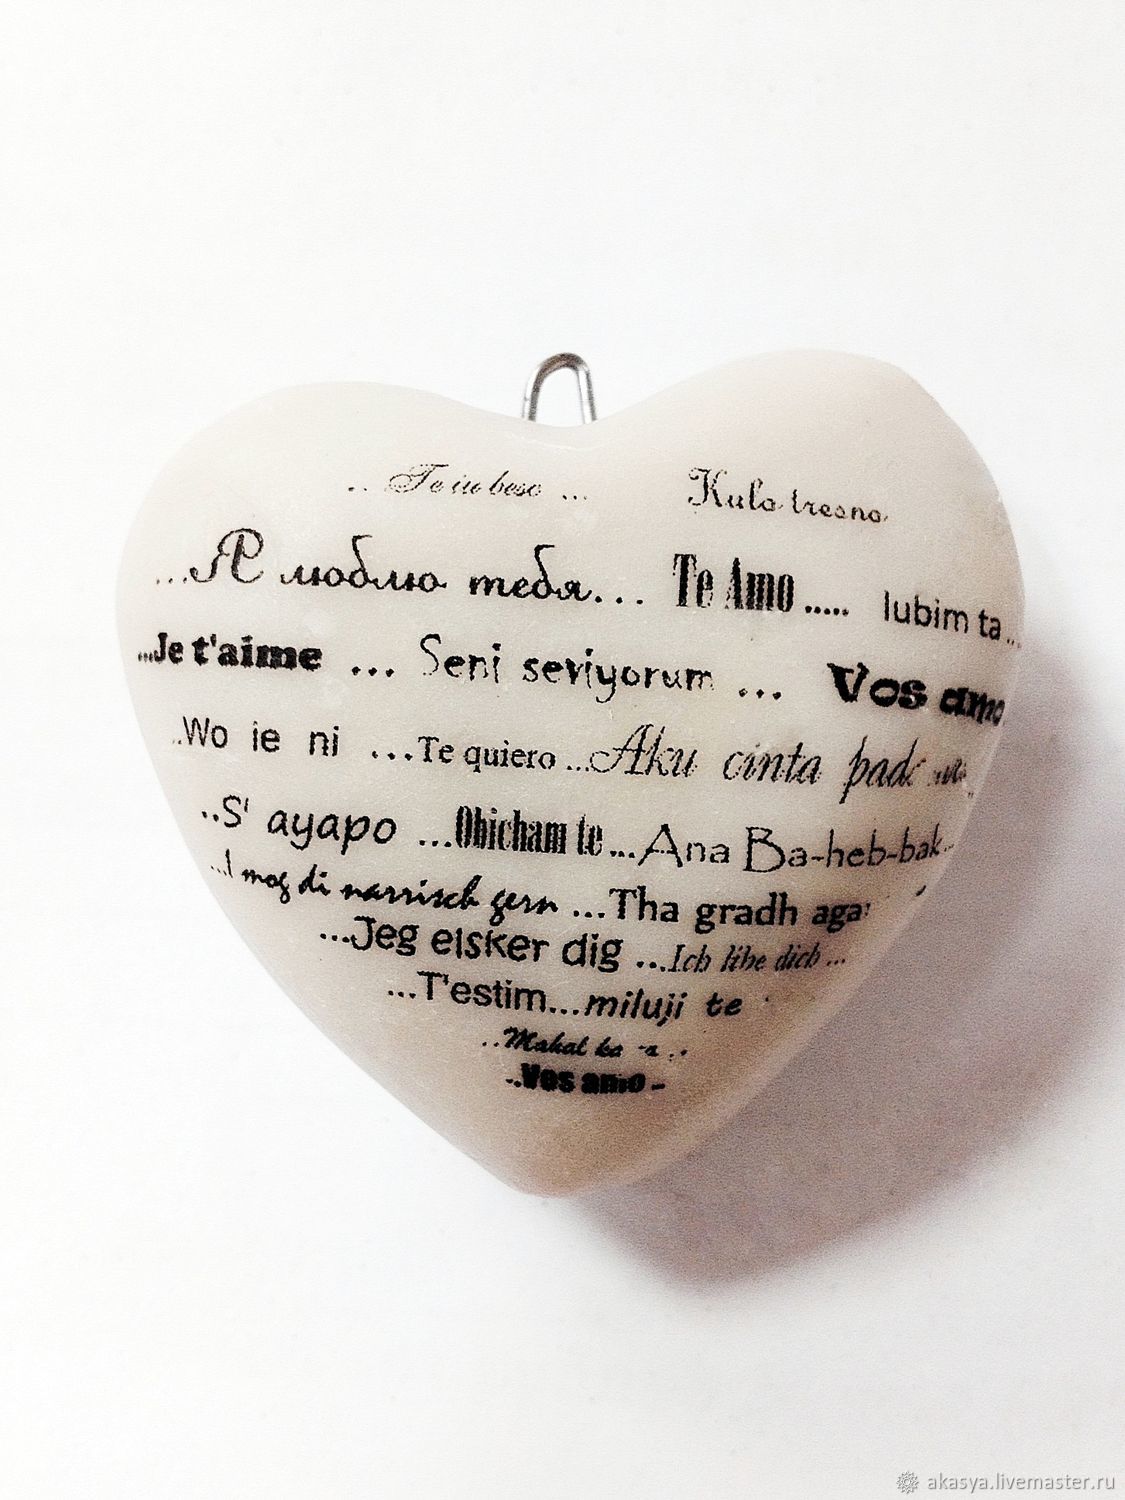 .. Te iu besc ... Kulo tresno
...Я люблю тебя... Te Amo ..... lubim ta...
...Je t'aime ... Seni seviyorum ... Vos amo
..Wo ie ni ...Te quiero ...Aku cinta pad
..S' ayapo ...Obicham te...Ana Ba-heb-bak..
...I mog di narrisch gern ...Tha gradh aga
...Jeg elsker dig ...Ich libe dich...
...T'estim...miluji te
..Mahal ka
..Vos amo -
akasya.livemaster.ru